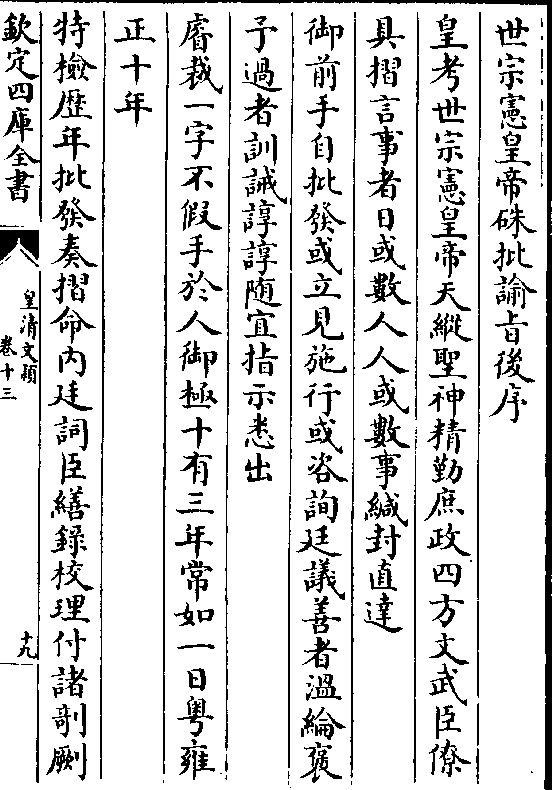 世宗憲皇帝硃批諭旨後序
皇考世宗憲皇帝天縱聖神精勤庶政四方文武臣僚
具摺言事者日或數人人或數事緘封直達
御前手自批發或立見施行或咨詢廷議善者溫綸褒
予過者訓誡諄諄随宜指示悉出
睿裁一字不假手於人御極十有三年常如一日粤雍
正十年
特檢歴年批發奏摺命内廷詞臣繕錄校理付諸剞劂
欽定四庫全書
皇清文穎
卷十三
十九